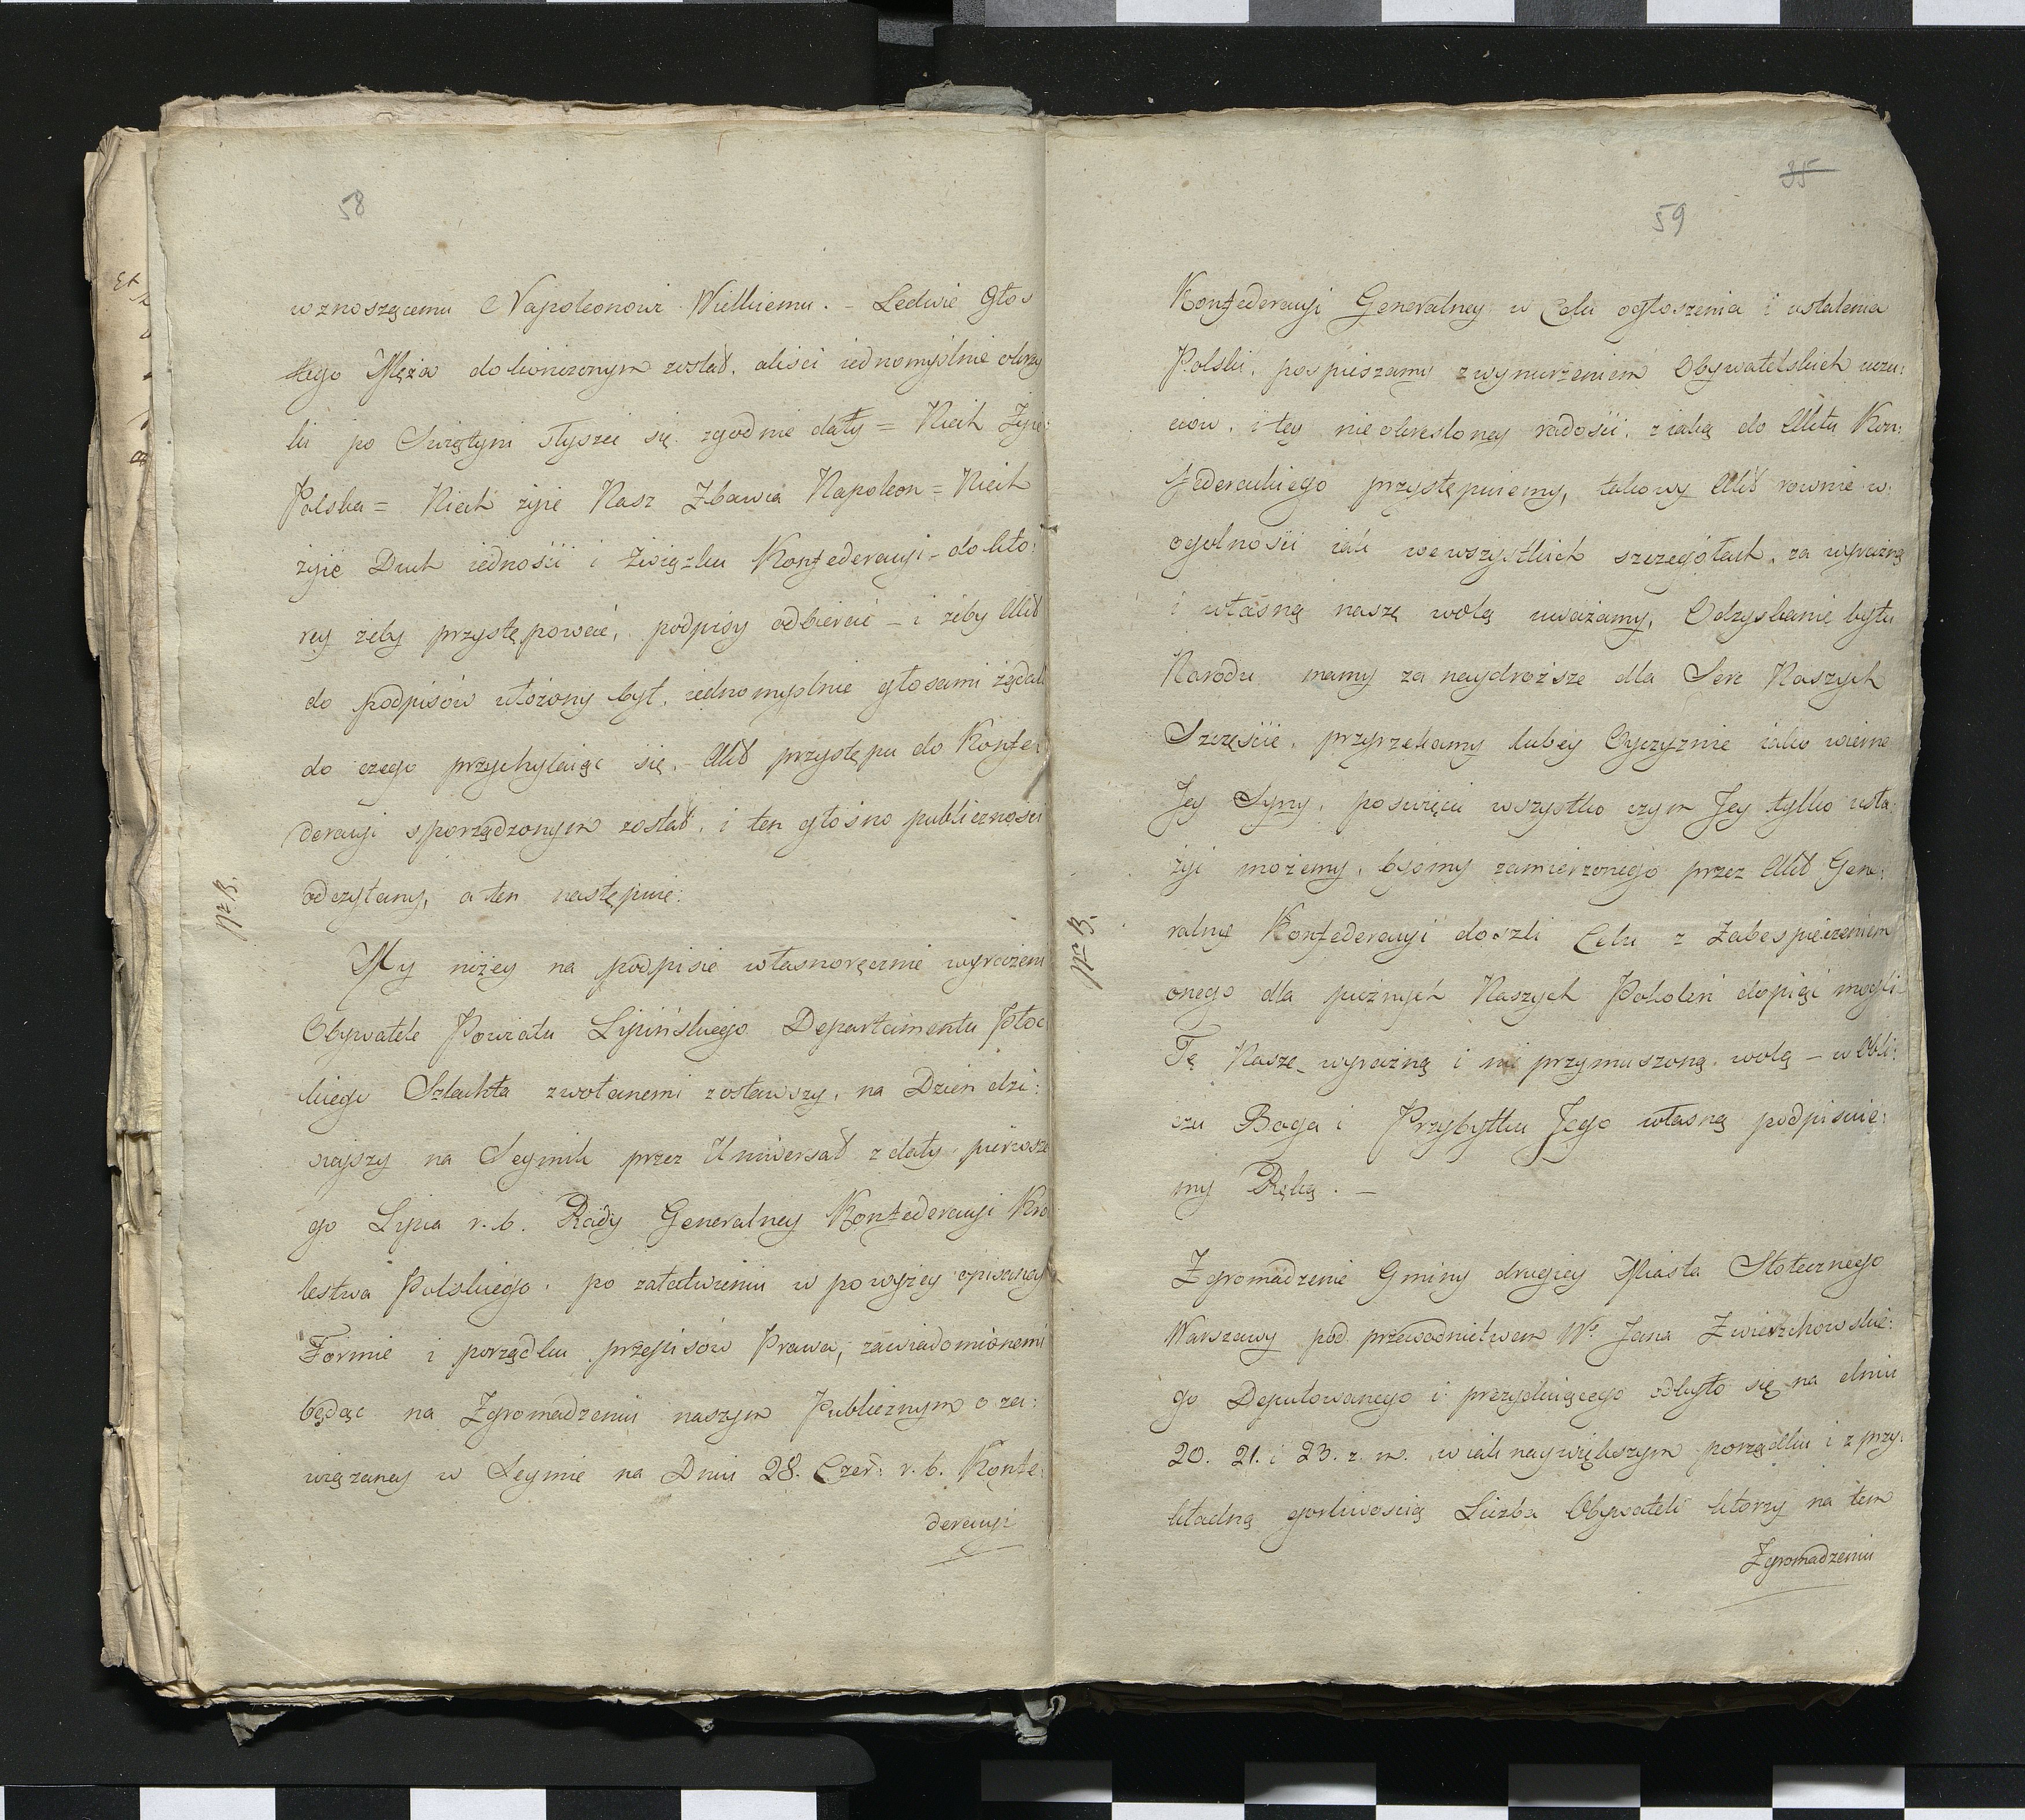 58
wznoszącemu Napoleonowi Wielkiemu. – Ledwie Głos
tego Męża dokończonym został, aliści iednomyślnie okrzy
ki po Swiętyni słyszeć się zgodnie dały = Niech Żyie
Polska = Niech żyie Nasz Zbawca Napoleon = Niech
żyie Duch iedności i Związku Konfederacyi – do któ:
rey żeby przystępować, podpisy odbierać – i żeby Akt
do podpisów ułożony był, iednomyślnie głosami żądali
do czego przychylaiąc się, Akt przystępu do Konfe:
deracyi sporządzonym został, i ten głośno publiczności
odczytany, a ten następuie:
Nr B.
My niżey na podpisie własnoręcznie wyrażeni
Obywatele Powiatu Lipińskiego Departamentu Płoc
kiego Szlachta zwołanemi zostawszy, na Dzień dzi:
sieyszy na Seymik przez Uniwersał z daty pierwsze
go Lipca r. b. Rady Generalney Konfederacyi Kró
lestwa Polskiego, po załatwieniu w powyżey opisaney
Formie i porządku przepisów Prawa, zawiadomionemi
będąc na Zgromadzeniu naszym Publicznym o za:
wiązaney w Seymie na Dniu 28. Czer: r. b. Konfe:
deracyi
35
59
Konfederacyi Generalney w Celu ogłoszenia i ustalenia
Polski, pospieszamy z wynurzeniem Obywatelskich uczu:
ciow, i tey nieokreśloney radości, z iaką do Aktu Kon:
federackiego przystępuiemy, takowy Akt rownie w
ogolności iak we wszystkich szczegółach, za wyraźną
i własną naszę wolą uważamy, Odzyskanie bytu
Narodu mamy za naydroższe dla Serc Naszych
Szczęście, przyrzekamy lubey Oyczyznie iako wierne
Jey Syny, poswięcić wszystko czym Jey tylko usłu:
żyć możemy, byśmy zamierzonego przez Akt Gene:
ralney Konfederacyi doszli Celu z Zabespieczeniem
Nr B.
onego dla poźnych Naszych Pokoleń dopiąć mogli
Tę Naszę wyraźną i nie przymuszoną wolą – w Obli:
czu Boga i Przybytku Jego własną podpisuie:
my Ręką. –
Zgromadzenie Gminy drugiey Miasta Stołecznego
Warszawy pod przewodnictwem Wo Jana Zwierzchowskie:
go Deputowanego i prezyduiącego odbyło się na dniu
20. 21. i 23. z. m. w iak naywiększym porządku i z przy:
kładną gorliwością Liczba Obywateli ktorzy na tem
Zgromadzeniu